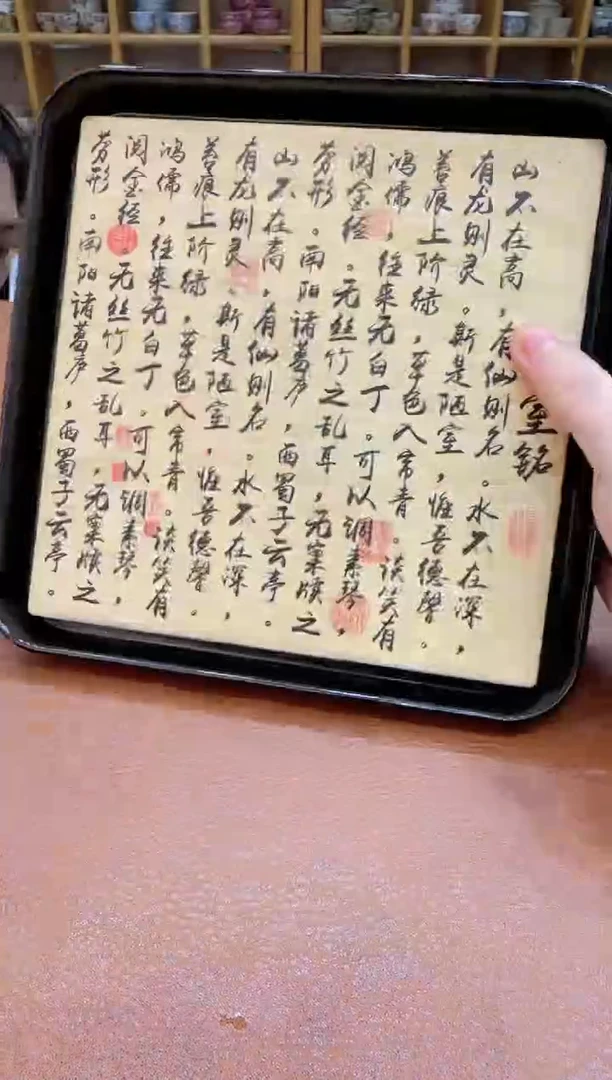 室铭
山不在高，有仙则名。水不在深，
有龙则灵。斯是陋室，惟吾德馨。
苔痕上阶绿，草色入帘青。谈笑有
鸿儒，往来无白丁。可以调素琴，
阅金经。无丝竹之乱耳，无案牍之
劳形。南阳诸葛庐，西蜀子云亭。
山不在高，有仙则名。水不在深，
有龙则灵。斯是陋室，惟吾德馨。
苔痕上阶绿，草色入帘青。谈笑有
鸿儒，往来无白丁。可以调素琴，
阅金经。无丝竹之乱耳，无案牍之
劳形。南阳诸葛庐，西蜀子云亭。